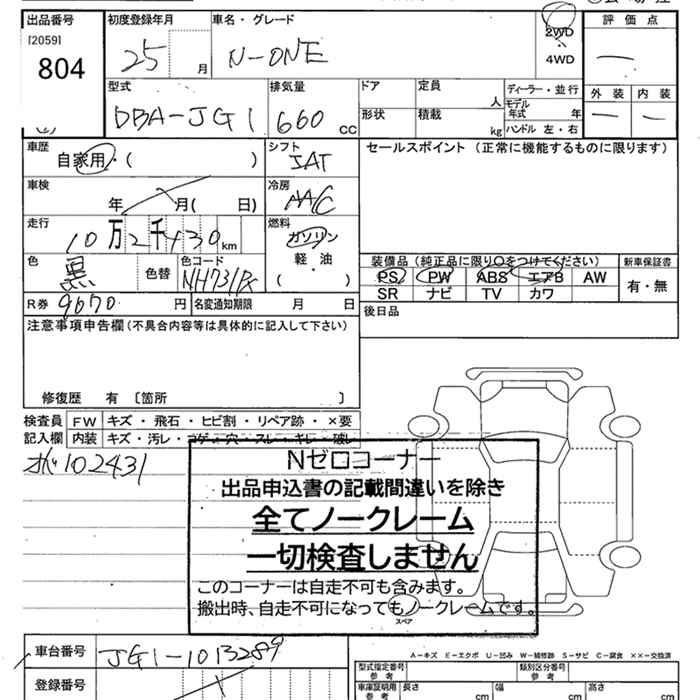 出品番号 初度登録年月 車名・グレード 評価点
[2059] 25 月 N-ONE 2WD 4WD —
804
型式 排気量 ドア 定員 人 ディーラー・並行 外装 内装
DBA-JG1 660 CC 形状 積載 kg モデル年式 年 — —
ハンドル 左・右
車歴 自家用・( ) シフト IAT セールスポイント (正常に機能するものに限ります)
車検 年 月( 日) 冷房 AA/C
走行 10万2千430km 燃料 ガソリン
軽・油
( )
色 黒 色替 色コード NH731P 装備品(純正品に限り○をつけてください) 新車保証書
PS PW ABS エアB AW 有・無
SR ナビ TV カワ
R券 9670 円 名変通知期限 月 日 後日品
注意事項申告欄(不具合内容等は具体的に記入して下さい)
修復歴 有 〔箇所 〕
検査員 FW キズ・飛石・ヒビ割・リペア跡・×要
記入欄 内装 キズ・汚レ・コゲ・穴・スレ・キレ・破レ
102431
Nゼロコーナー
出品申込書の記載間違いを除き
全てノークレーム
一切検査しません
このコーナーは自走不可も含みます。
搬出時、自走不可になってもノークレームです。
スペア
車台番号 JG1-1013289
A-キズ E-エクボ U-凹み W-補修跡 S-サビ C-腐食 ××-交換済
登録番号
型式指定番号 参考 類別区分番号 参考
車庫証明用 参考 長さ cm 幅 cm 高さ cm